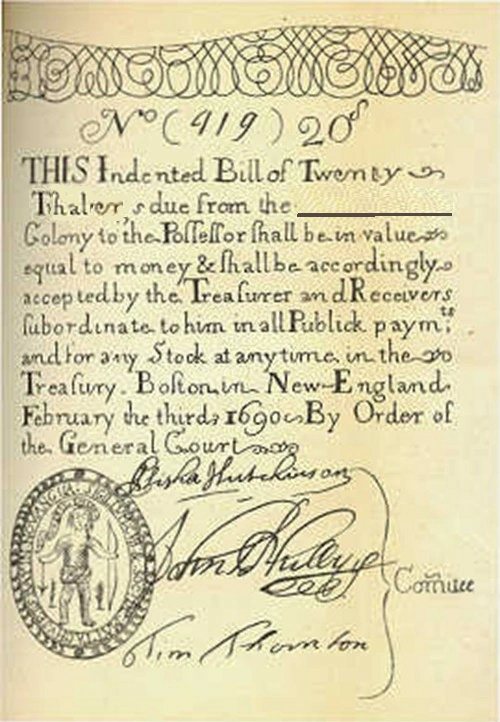 Nº (919) 20ˢ
THIS Indented Bill of Twenty
Thaler s due from the
Colony to the Poſſeſſor ſhall be in value
equal to money & ſhall be accordingly
accepted by the Treaſurer and Receivers
ſubordinate to him in all Publick paymᵗˢ
and for any Stock at any time in the
Treaſury. Boſton in New-England
February the third 1690 By Order of
the General Court
Eliſha Hutchinson
Tim Thornton
Com̄ittee